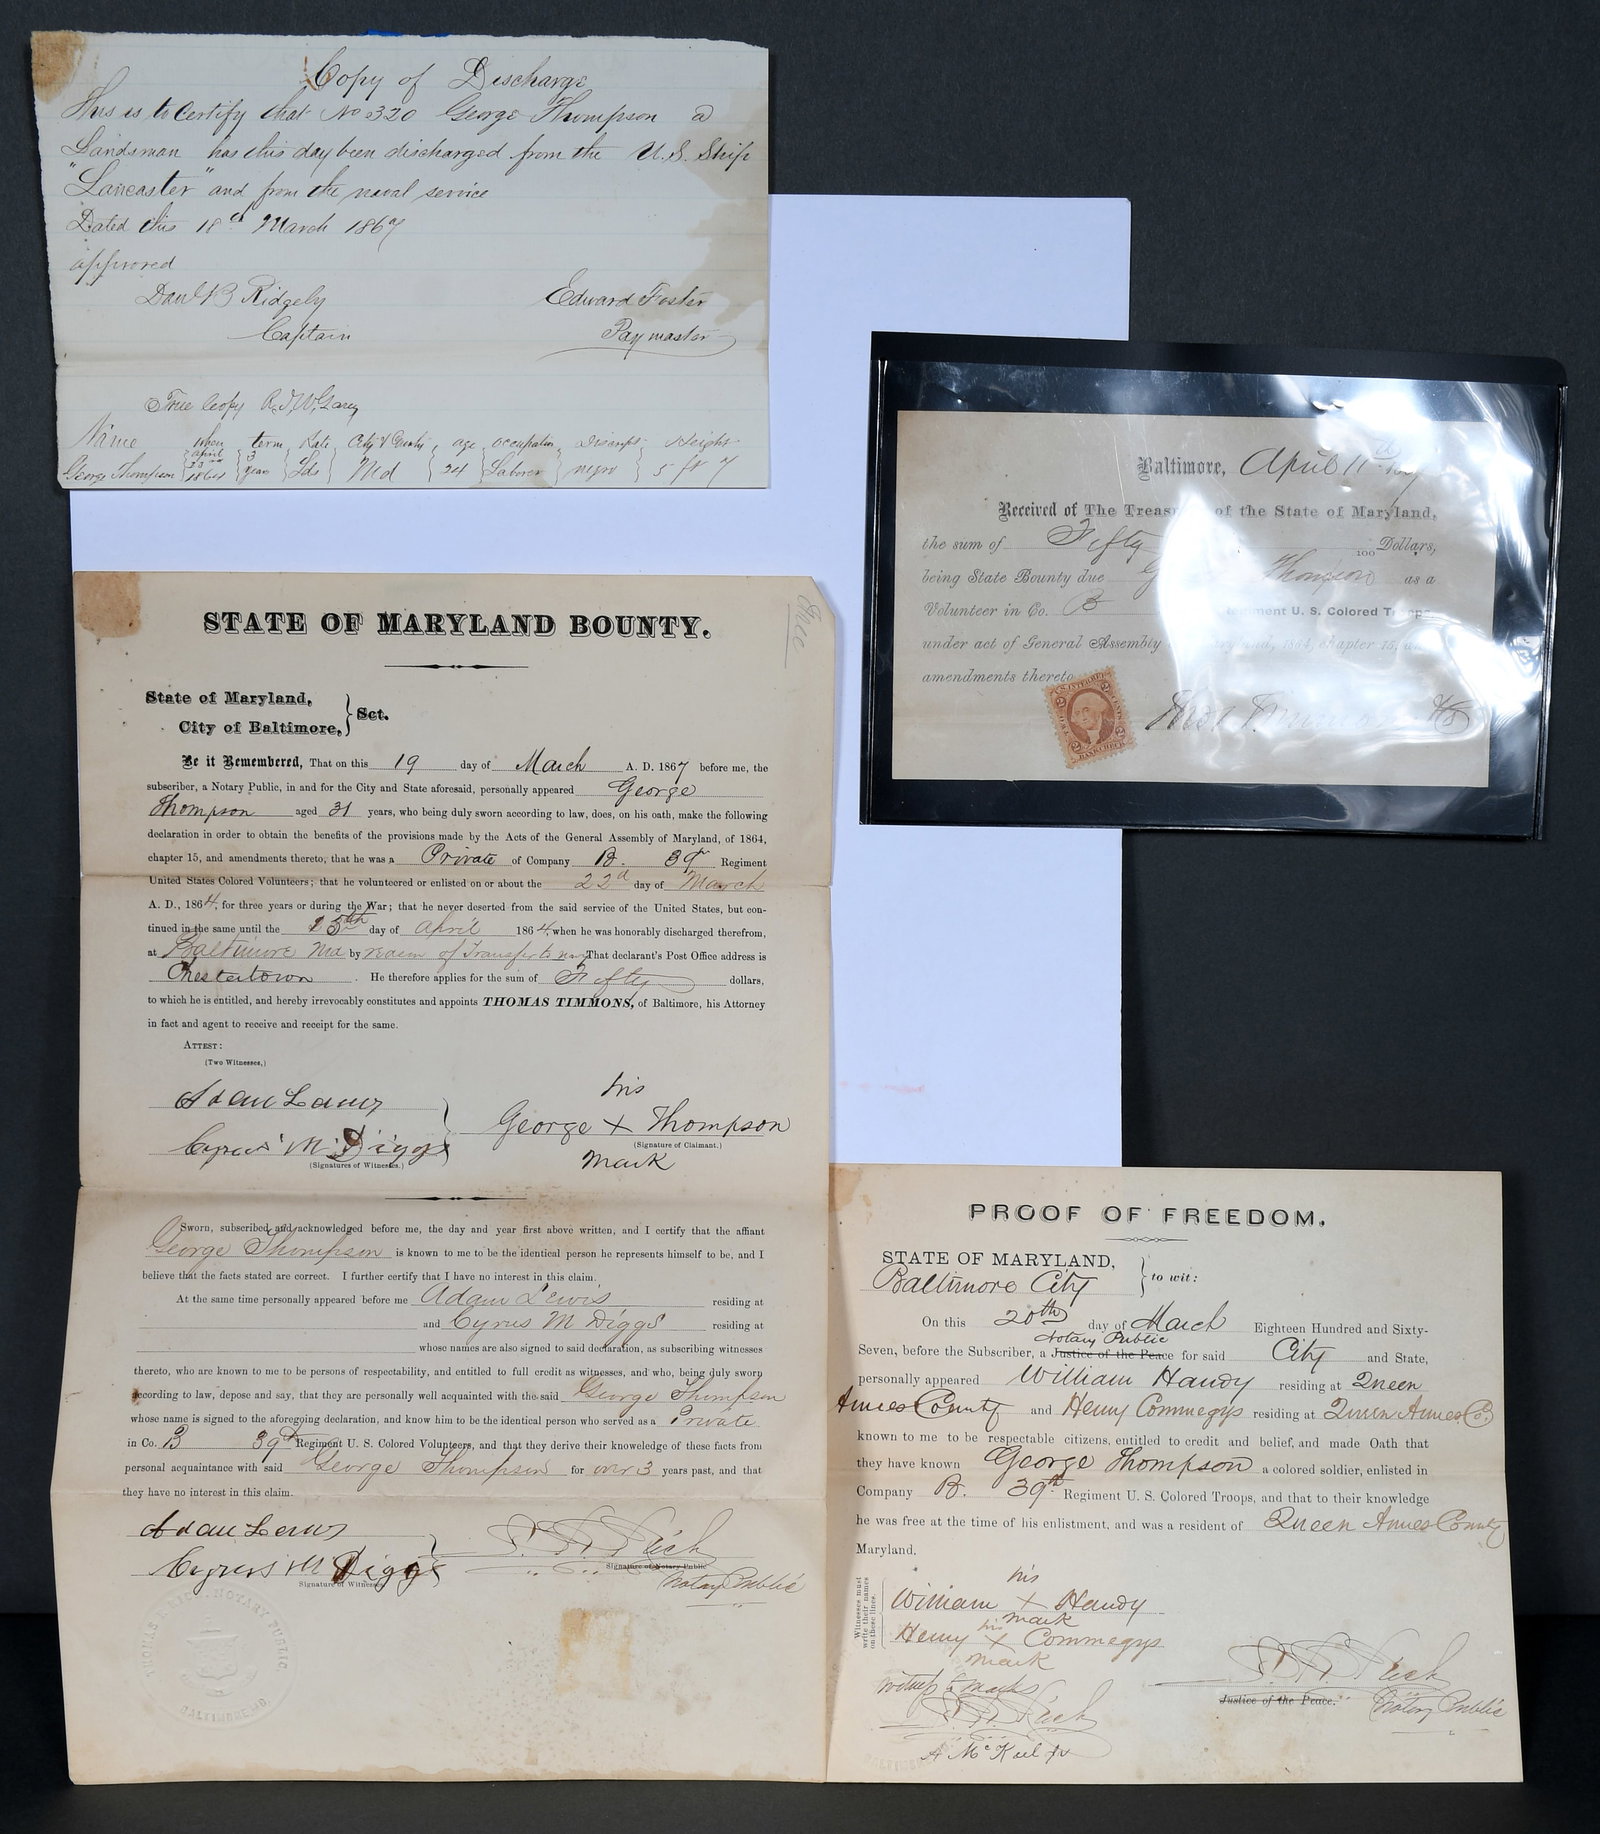 Copy of Discharge
This is to Certify that No 320 George Thompson a
Landsman has this day been discharged from the U.S. Ship
"Lancaster" and from the naval service
Dated this 18th March 1867
approved
Danl B Ridgely Edward Foster
Captain Paymaster
True Copy
Name when term Rate City & County age occupation Height
April 3
George Thompson 1864 years Lds Md 24 Laborer negro 5 ft 7
Baltimore, April 11th
Received of The Treas of the State of Maryland,
the sum of Fifty 100 Dollars,
being State Bounty due Thompson as a
Volunteer in Co. B U. S. Colored Troops
under act of General Assembly 1864, chapter 15,
amendments thereto
U.S. INTER.
BANK CHECK
STATE OF MARYLAND BOUNTY.
Free
State of Maryland,
City of Baltimore, } Sct.
Be it Remembered, That on this 19 day of March A. D. 1867 before me, the
subscriber, a Notary Public, in and for the City and State aforesaid, personally appeared George
Thompson aged 31 years, who being duly sworn according to law, does, on his oath, make the following
declaration in order to obtain the benefits of the provisions made by the Acts of the General Assembly of Maryland, of 1864,
chapter 15, and amendments thereto, that he was a Private of Company B. 39th Regiment
United States Colored Volunteers; that he volunteered or enlisted on or about the 22d day of March
A. D., 1864, for three years or during the War; that he never deserted from the said service of the United States, but con-
tinued in the same until the 15th day of April 1864, when he was honorably discharged therefrom,
at Baltimore Md by reason of Transfer to navy That declarant's Post Office address is
Chestertown. He therefore applies for the sum of Fifty dollars,
to which he is entitled, and hereby irrevocably constitutes and appoints THOMAS TIMMONS, of Baltimore, his Attorney
in fact and agent to receive and receipt for the same.
ATTEST:
(Two Witnesses,)
Adam Lewis his
Cyrus M Diggs George X Thompson
(Signatures of Witnesses.) (Signature of Claimant.)
mark
Sworn, subscribed and acknowledged before me, the day and year first above written, and I certify that the affiant
George Thompson is known to me to be the identical person he represents himself to be, and I
believe that the facts stated are correct. I further certify that I have no interest in this claim.
At the same time personally appeared before me Adam Lewis residing at
and Cyrus M Diggs residing at
whose names are also signed to said declaration, as subscribing witnesses
thereto, who are known to me to be persons of respectability, and entitled to full credit as witnesses, and who, being duly sworn
according to law, depose and say, that they are personally well acquainted with the said George Thompson
whose name is signed to the aforegoing declaration, and know him to be the identical person who served as a Private
in Co. B 39th Regiment U. S. Colored Volunteers, and that they derive their knowledge of these facts from
personal acquaintance with said George Thompson for over 3 years past, and that
they have no interest in this claim.
Adam Lewis
Cyrus M Diggs Signature of Notary Public
Signature of Witnesses Notary Public
NOTARY PUBLIC
BALTIMORE MD.
PROOF OF FREEDOM.
STATE OF MARYLAND,
Baltimore City } to wit:
On this 20th day of March Eighteen Hundred and Sixty-
Notary Public
Seven, before the Subscriber, a Justice of the Peace for said City and State,
personally appeared William Handy residing at Queen
Annes County and Henry Commegys residing at Queen Annes Co.
known to me to be respectable citizens, entitled to credit and belief, and made Oath that
they have known George Thompson a colored soldier, enlisted in
Company B. 39th Regiment U. S. Colored Troops, and that to their knowledge
he was free at the time of his enlistment, and was a resident of Queen Annes County
Maryland.
Witnesses must write their names on these lines.
his
William X Handy
mark
his
Henry X Commegys
mark
Witness to marks
Justice of the Peace. Notary Public